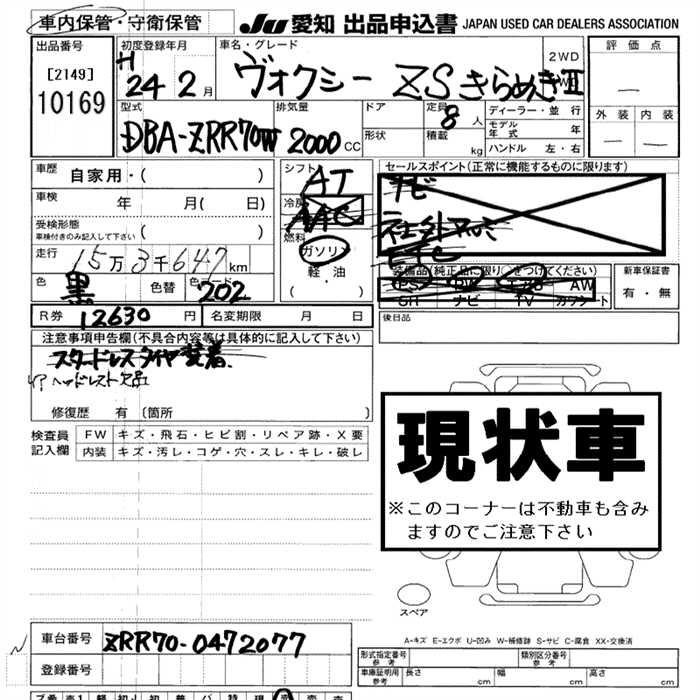 車内保管・守衛保管 JU 愛知 出品申込書 JAPAN USED CAR DEALERS ASSOCIATION
出品番号 初度登録年月 車名・グレード 評価点
[2149] H 24 2月 ヴォクシー ZSきらめきⅡ 2WD
10169
型式 排気量 ドア 定員 8人 ディーラー・並行 外装 内装
DBA-ZRR70W 2000CC 形状 積載 kg モデル年式 年
ハンドル 左・右
車歴 自家用・( ) シフト AT セールスポイント(正常に機能するものに限ります)
車検 年 月( 日) 冷房 AAC ナビ
受検形態 ( )
車検付きのみ記入して下さい
燃料 ガソリン ETC
走行 15万3千647km 軽・油
( )
装備品(純正品に限り○をつけてください) 新車保証書
色 黒 色替 カラーコード 202 PS PW エアB AW 有・無
SR ナビ TV カワシート
R券 12630円 名変期限 月 日 後日品
注意事項申告欄(不具合内容等は具体的に記入して下さい)
スタッドレスタイヤ装着
ヘッドレスト欠品
修復歴 有〔箇所 〕
検査員記入欄 FW キズ・飛石・ヒビ割・リペア跡・X要
内装 キズ・汚レ・コゲ・穴・スレ・キレ・破レ
現状車
※このコーナーは不動車も含み
ますのでご注意下さい
スペア
A-キズ E-エクボ U-凹み W-補修跡 S-サビ C-腐食 XX-交換済
車台番号 ZRR70-0472077
登録番号
形式指定番号 参考 類別区分番号 参考
車庫証明用 参考 長さ cm 幅 cm 高さ cm